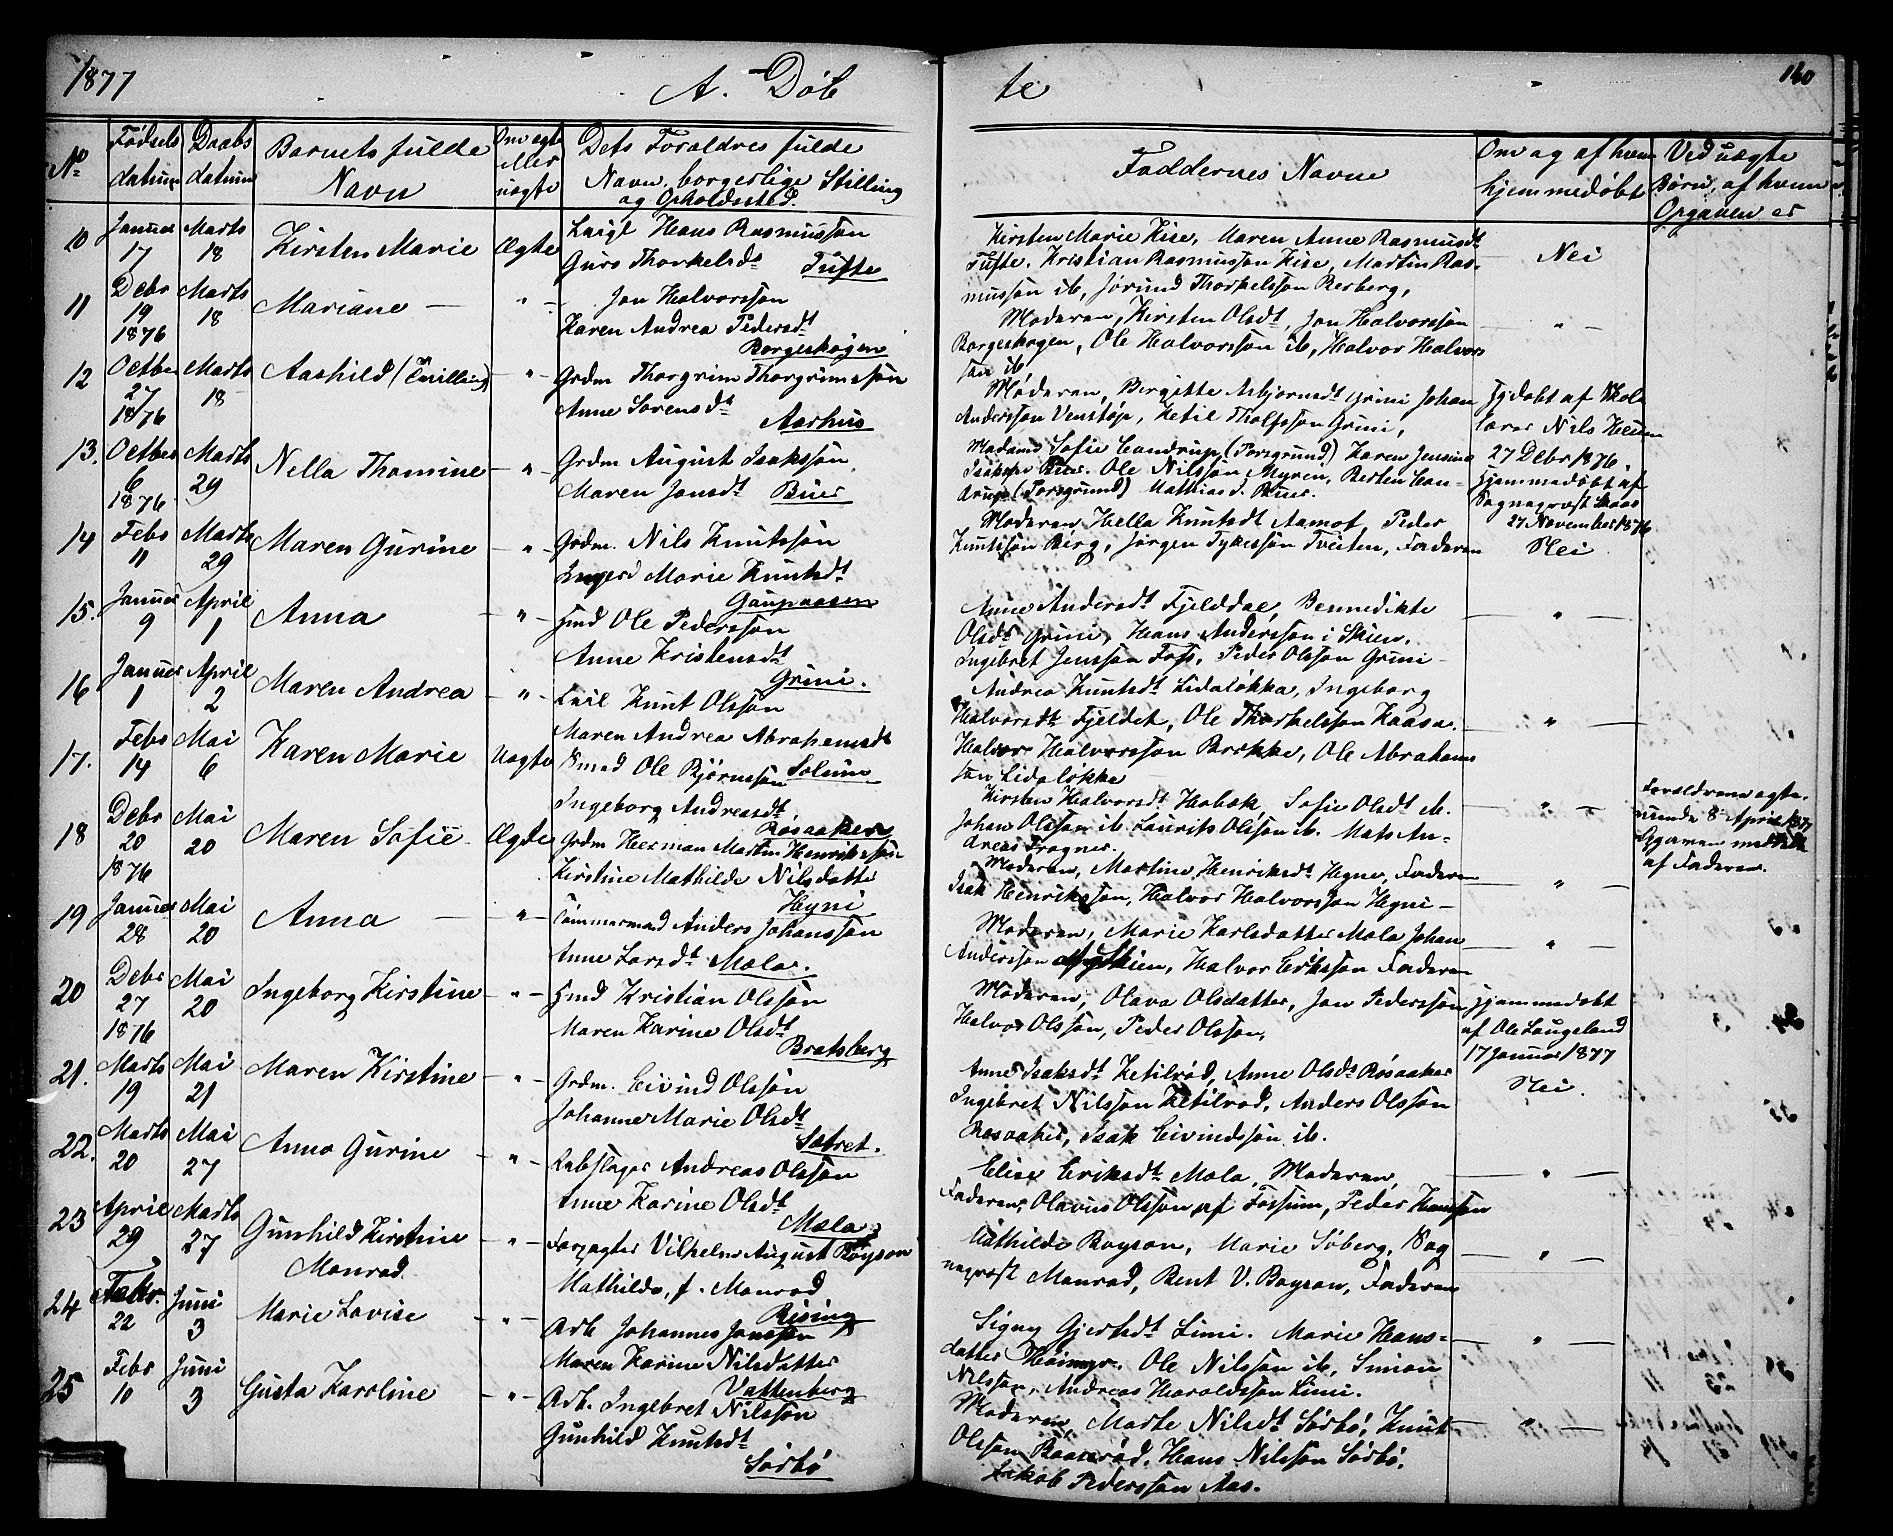 1877
A. Døb
te
160
No
Fødsels
datum
Daabs
datum
Barnets fulde
Navn
Om ægte
eller
uægte
Dets Foreldres fulde
Navn, borgerlige Stilling
og Opholdssted.
Faddernes Navne
Om og af hvem
hjemmedøbt
Ved uægte
Børn, af hvem
Opgaven er
10 Januar 17 Marts 18 Kirsten Marie Ægte
Hans Rasmussøn
Guro Thorkelsdt Tufte
Kirsten Marie Kise, Maren Anne Rasmusdt
Tufte, Kristian Rasmussøn Kise, Martin Ras-
mussøn ib, Jørund Thorkelssøn Rerberg,
Nei
11 Debr 19 1876 Marts 18 Mariane — " —
Jon Halvorssøn
Karen Andrea Pedersdt
Borgeskogen
Moderen, Kirsten Olsdt, Jon Halvorssøn
Borgeskogen, Ole Halvorssøn ib, Halvor Halvors
søn ib
— " —
12 Octbr 27 1876 Marts 18 Aashild (Tvilling) — " —
Grdm Thorgrim Thorgrimssøn
Anne Sorensdt
Aarhus
Moderen, Birgitte Asbjørnsdt Grini Johan
Anderssøn Venstøp, Ketil Tholfssøn Grini,
Hjdøbt af Skole
lærer Nils Heum
27 Debr 1876.
13. Octber 6 1876 Marts 29 Nella Thomine — " —
Grdm August Isakssøn
Maren Jonsdt Buer
Madame Sofie Candrup (Porsgrund) Karen Jensine
Isaksøn Buer. Ole Nilssøn Myren, Berten Can-
drup (Porsgrund) Mathias d. Buer.
Hjemmedøbt af
Sognepræst
27 November 1876
14 Febr 11 Marts 29 Maren Gurine — " —
Grdm. Nils Knutssøn
Inger Marie Knutsdt
Gaupaasen
Moderen, Hella Knutsdt Aamot, Peder
Knutssøn Berg, Jørgen Tykessøn Tveiten, Faderen
Nei
15. Januar 9 April 1 Anna — " —
Hmd Ole Pederssøn
Anne Kristensdt
Grini.
Anne Andersdt Fjelddal, Bennedikte
Olsdt Grini, Hans Anderssøn i Skien,
Ingebret Jenssøn Foss, Peder Olssøn Grini
— " —
16 Januar 1 April 2 Maren Andrea — " —
Knut Olssøn
Maren Andrea Abrahamsdt
Solum
Andrea Knutsdt Lidaløkka, Ingeborg
Halvorsdt Fjeldet, Ole Thorkelssøn Kaasa.
Halvor Halvorssøn Brække, Ole Abrahams
søn Lidaløkka
— " —
17. Febr 14 Mai 6 Karen Marie Uægte
Smed Ole Bjørnssøn
Ingeborg Andreasdt
Rosaaker
Kirsten Halvorsdt Habek, Sofie Olsdt ib.
Johan Olssøn ib Laurits Olssøn ib. Mats An-
dreas Frogner.
— " —
Foreldrene ægte-
viede 8 April 1877
Opgaven meddelt
af Faderen.
18 Debr 20 1876 Mai 20 Maren Sofie Ægte
Grdm Herman Martin Henrikssøn
Kirstine Mathilde Nilsdatter
Hyni
Moderen, Martine Henriksdt Hyne, Faderen
Isak Henrikssøn, Halvor Halvorssøn Hyni —
— " —
19 Januar 28 Mai 20 Anna — " —
Tømmermand Anders Johanssøn
Anne Larsdt Mæla.
Moderen, Marie Karlsdatter Mæla Johan
Anderssøn Skien, Halvor Erikssøn Faderen
— " —
20 Debr 27 1876 Mai 20 Ingeborg Kirstine — " —
Hmd Kristian Olssøn
Maren Karine Olsdt
Bratsberg
Moderen, Olava Olsdatter, Jon Pederssøn
Halvor Olssøn, Peder Olssøn,
Hjemmedøbt
af Ole Laugeland
17 Januar 1877
21. Marts 19 Mai 21 Maren Kirstine — " —
Grdm. Eivind Olssøn
Johanne Marie Olsdt
Sætret.
Anne Isaksdt Ketilrød, Anne Olsdt Rosaaker
Ingebret Nilssøn Ketilrød, Anders Olssøn
Rosaaker, Isak Eivindssøn ib.
Nei.
22. Marts 20 Mai 27 Anna Gurine — " —
Rebslager Andreas Olssøn
Anne Karine Olsdt
Mæla
Elise Eriksdt Mæla, Moderen,
Faderen, Olavus Olssøn pf Fossum, Peder Hanssøn
— " —
23 April 29 Marts 27 Gunhild Kirstine
Monrad — " —
Forpagter Vilhelm August Boyson
Mathilde, f. Monrad
Rising
Mathilde Boyson, Marie Søberg, Sog
nepræst Monrad, Bent V. Boyson, Faderen
— " —
24 Febr. 22 Juni 3 Marie Lovise — " —
Arb Johannes Jonssøn
Maren Karine Nilsdatter
Vattenberg
Signy Gjertsdt Limi. Marie Hans-
datter Høimyr. Ole Nilssøn ib, Simon
Nilssøn, Andreas Haroldssøn Limi.
— " —
25 Febr 10 Juni 3 Gusta Karoline — " —
Arb. Ingebret Nilssøn
Gunhild Knutsdt
Sørbø
Moderen, Marte Nilsdt Sørbø, Knut
Olssøn Baaserød, Hans Nilssøn Sørbø,
Jakob Pederssøn Aas.
— " —